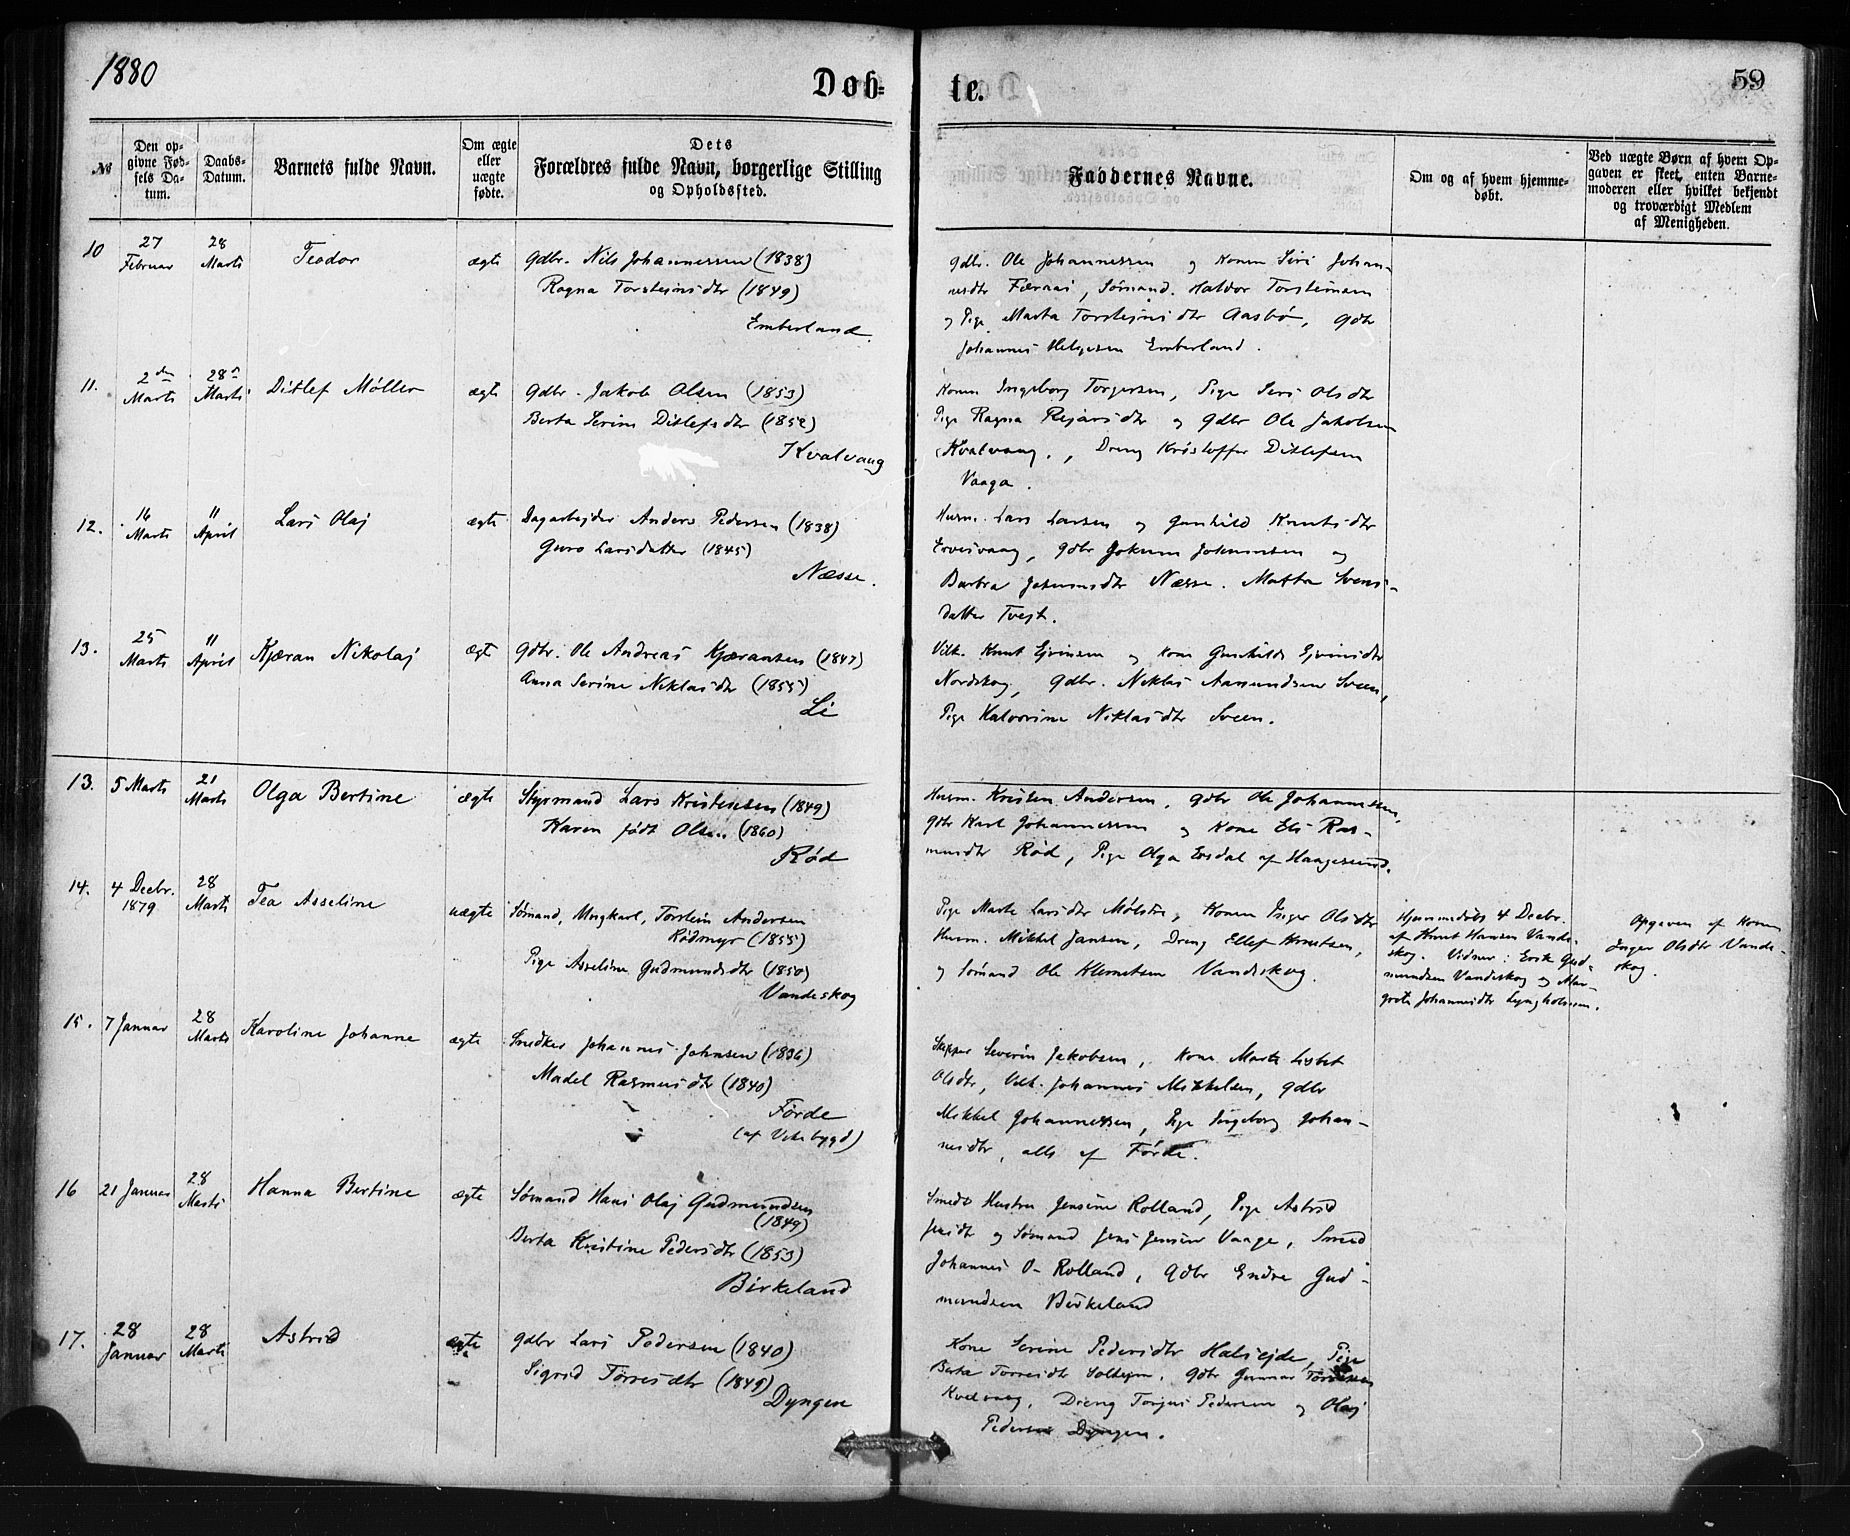 1880
Døb=
te.
59
№
Den op-
givne Føb-
sels Da-
tum.
Daabs-
Datum.
Barnets fulde Navn.
Om ægte
eller
uægte
fødte.
Dets
Forældres fulde Navn, borgerlige Stilling
og Opholdssted.
Faddernes Navne.
Om og af hvem hjemme-
døbt.
Ved uægte Børn af hvem Op-
gaven er skeet, enten Barne-
moderen eller hvilket bekjendt
og troværdigt Medlem
af Menigheden.
10
27
Februar
28
Marts
Teodor
ægte
Gdbr. Nils Johannessen (1838)
Ragna Torsteinsdtr (1849)
Emberland.
Gdbr. Ole Johannessen og Konen Siri Johan-
nesdtr Færaas, Sømand. Haldor Torsteinsen
og Pige Marta Torsteinsdtr Aasbø, Gdbr
Johannes Helgesen Emberland.
11.
2den
Marts
28
Marts
Ditlef Møller
ægte
Gdbr. Jakob Olsen (1853)
Berta Serine Ditlefsdtr (1852)
Kvalvaag
Konen Ingeborg Torgersen, Pige Siri Olsdtr
Pige Ragna Rejarsdtr og Gdbr Ole Jakobsen
Kvalvaag., Dreng Kristoffer Ditlefsen
Vaaga.
12.
16
Marts
11
April
Lars Olaj
ægte
Dagarbejder Anders Pedersen (1838)
Guro Larsdatter (1845)
Næsse.
Husm. Lars Larsen og Gunhild Knutsdtr
gdbr Jokum Johannesen og
Barbra Johannesdtr Næsse. Martha Svens-
datter Tvejt.
13.
25
Marts
11
April
Kjæran Nikolaj
ægte
Gdbr. Ole Andreas Kjæransen (1847)
Anna Serine Niklasdtr (1855)
Li
Vilk. Knut Ejvinsen og Kone Gunhilde Ejvinsdtr
Nordskog, Gdbr. Niklas Aamundsen Sveen,
Pige Halvorine Niklasdtr Sveen.
13.
5 Marts
21
Marts
Olga Bertine
ægte
Styrmand Lars Kristensen (1849)
Karen født Olsen (1860)
Rød
Husm. Kristen Andersen, Gdbr Ole Johannessen,
Gdbr Karl Johannessen og Kone Eli Ras-
musdtr Rød, Pige Olga Ersdal af Haugesund.
14.
4 Decbr.
1879
28
Marts
Tea Asseline
uægte
Sømand, Ungkarl, Torstein Andersen
Rødmyr (1855)
Pige Asseline Gudmundsdtr (1850)
Vandeskog
Pige Marte Larsdtr Mølstre, Konen Inger Olsdtr
Husm. Mikkel Jansen, Dreng Ellef Knutsen,
og Sømand Ole Klemetsen Vandeskog
Hjemmedøbt 4 Decbr.
af Knut Hansen Vande-
skog. Vidner: Eirik Gud-
mundsen Vandeskog og Mar-
grete Johannesdtr Lyngholmen.
Opgaven af Konen
Inger Olsdtr Vande-
skog.
15.
7 Januar
28
Marts
Karoline Johanne
ægte
Snedker Johannes Johnsen (1836)
Madel Rasmusdtr (1840)
Førde
(af Vikebygd)
Skipper Severin Jakobsen, Kone Marte Lisbet
Olsdtr, Vilk. Johannes Mikkelsen, Gdbr
Mikkel Johannessen, Pige Ingeborg Johan-
nesdtr, alle af Førde.
16
21 Januar
28
Marts
Hanna Bertine
ægte
Sømand Hans Olaj Gudmundsen
(1849)
Berta Kristine Pedersdtr (1853)
Birkeland
Smeds Hustru Jensine Rolland, Pige Astrid
Jensdtr og Sømand Jens Jensen Vaage, Smed
Johannes O- Rolland, Gdbr Endre Gud-
mundsen Birkeland
17.
28
Januar
28
Marts
Astrid
ægte
Gdbr Lars Pedersen (1840)
Sigrid Torresdtr (1849)
Dyngen
Kone Serine Pedersdtr Halsejde, Pige
Berta Torresdtr Solheim, Gdbr Gunnar Torresen
Kvalvaag, Dreng Torjus Pedersen og Olaj
Pedersen Dyngen.